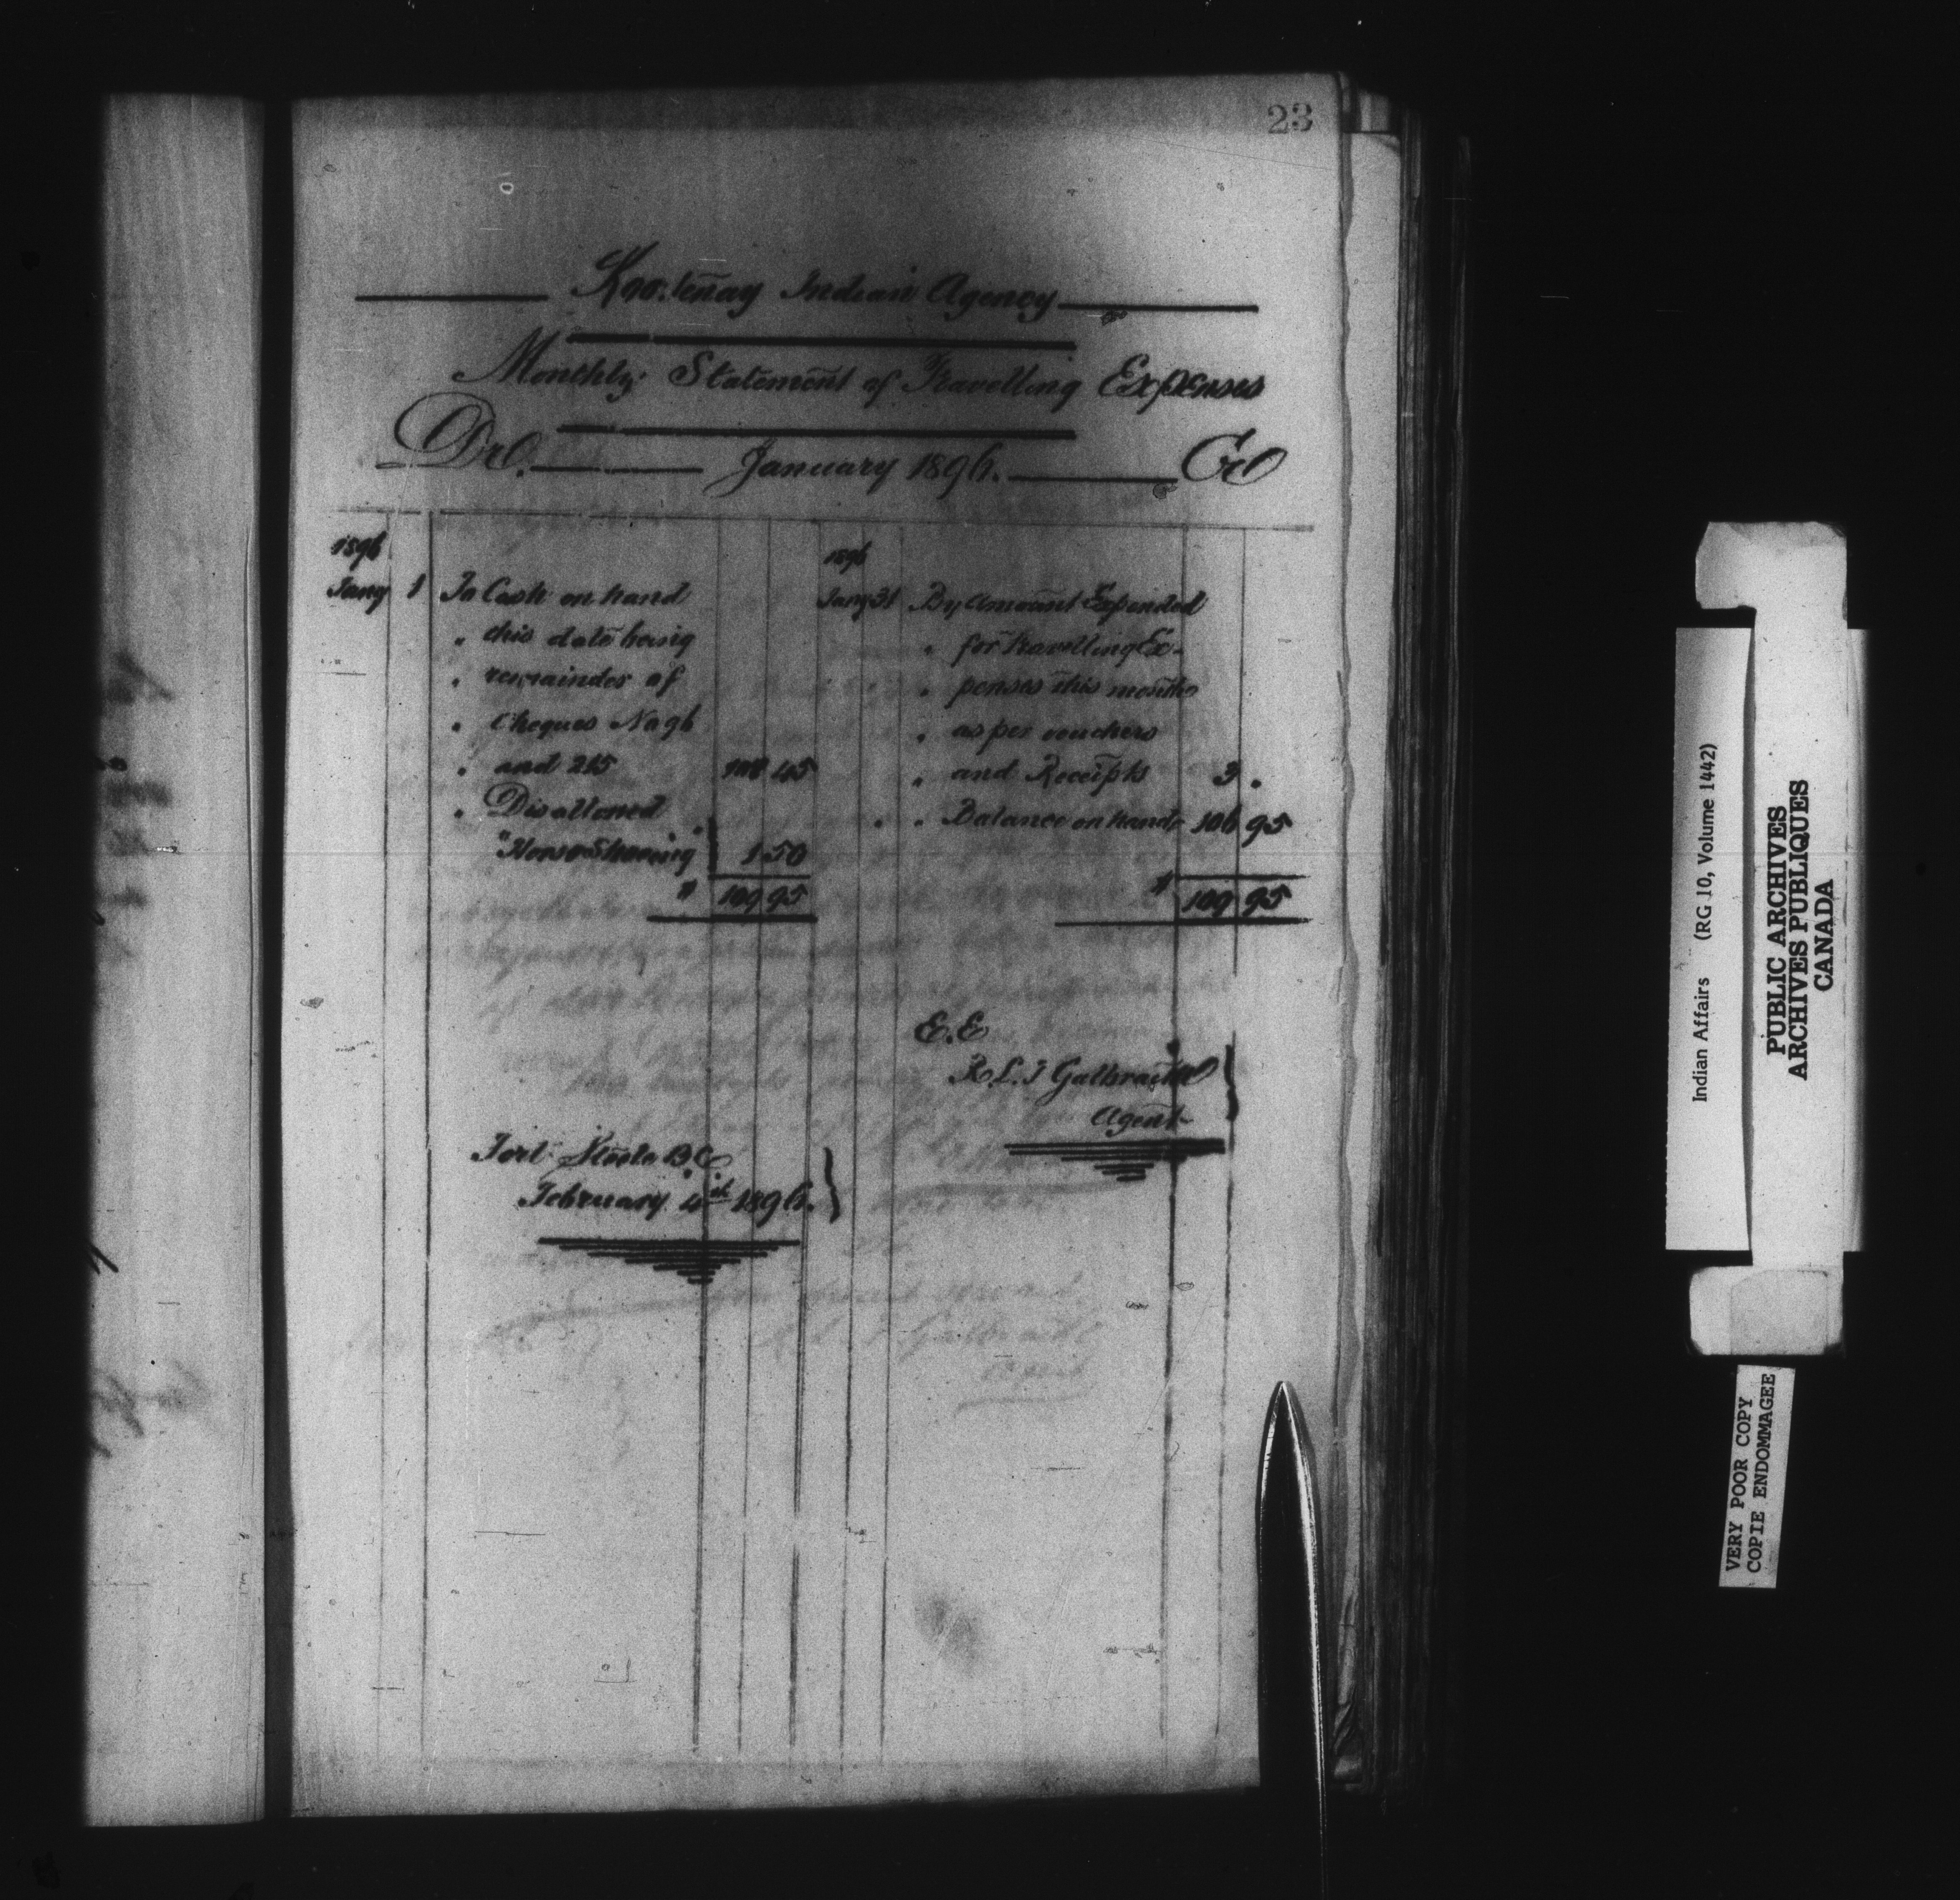 23
Kootenay Indian Agency
Monthly Statement of Travelling Expenses
Dr. January 1896. Cr
1896
Jany 1 To Cash on hand
" this date being
" remainder of
" Cheques No 96
" and 215 108 45
" Disallowed
" Horse Shoeing } 1 50
$ 109 95
1896
Jany 31 By Amount Expended
" for Travelling Ex-
" penses this month
" as per vouchers
" and Receipts 3 .
" " Balance on hand 106 95
$ 109 95
E.E
R.L.T Galbraith
Agent }
Fort Steele B.C.
February 4th 1896. }
Indian Affairs (RG 10, Volume 1442)
PUBLIC ARCHIVES
ARCHIVES PUBLIQUES
CANADA
VERY POOR COPY
COPIE ENDOMMAGEE